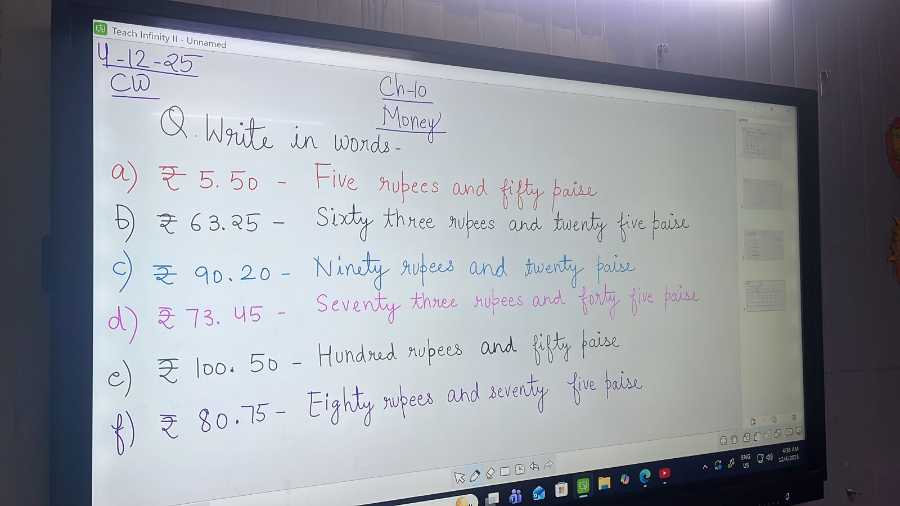 Teach Infinity II - Unnamed
4-12-25
CW
Ch-10
Money
Q. Write in words-
a) ₹ 5.50 - Five rupees and fifty paise
b) ₹ 63.25 - Sixty three rupees and twenty five paise
c) ₹ 90.20 - Ninety rupees and twenty paise
d) ₹ 73.45 - Seventy three rupees and forty five paise
e) ₹ 100.50 - Hundred rupees and fifty paise
f) ₹ 80.75 - Eighty rupees and seventy five paise
ENG
US